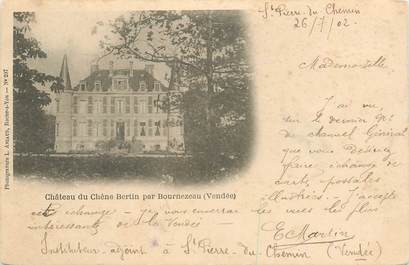 St Pierre-du-Chemin
26/7/02
Mademoiselle,
J'ai vu,
sur le dernier No
du journal Général
que vous Désirez
faire échange de
cartes postales
illustrées. J'accepte
Phototypie L. Amiaud, Roche-s-Yon — No 207
Château du Chêne Bertin par Bournezeau (Vendée)
cet échange - je vous enverrai les vues les plus
intéressantes de la Vendée -
E Martin
Instituteur-adjoint à St Pierre-du-Chemin
(Vendée)